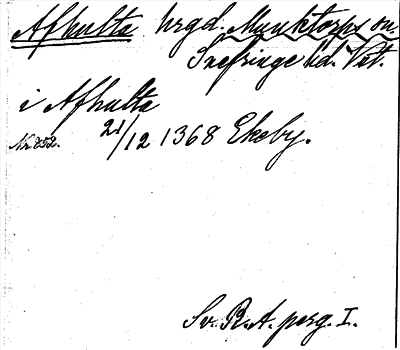 Afhulta hrgd. Munktorps sn.
Snefringe hd. Vst.
i Afhulta
Nr 852. 21/12 1368 Ekeby.
Sv. R. A. perg. I.